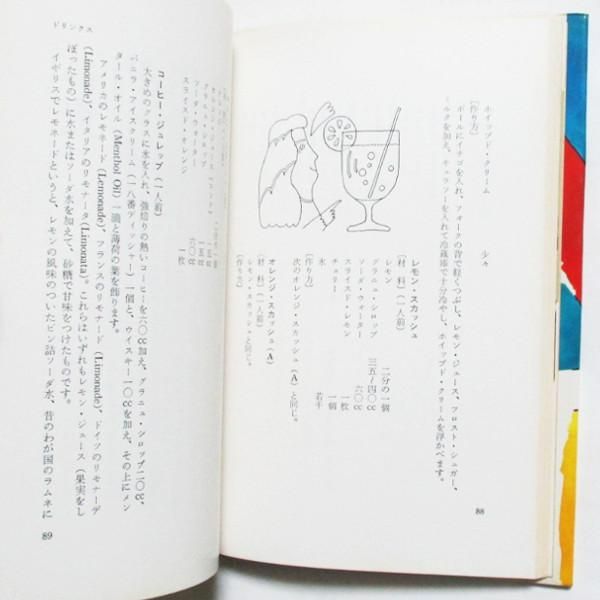 ホイップド・クリーム 少々
〔作り方〕
ボールにイチゴを入れ、フォークの背で軽くつぶし、レモン・ジュース、フロスト・シュガー、
ミルクを加え、キュラソーを入れて冷蔵庫で十分冷やし、ホイップド・クリームを浮かべます。
レモン・スカッシュ
〔材 料〕(一人前)
レモン 二分の一個
グラニュ・シロップ 三五~四〇cc
ソーダ・ウォーター 六〇cc
スライスド・レモン 一枚
チェリー 一個
氷 若干
〔作り方〕
次のオレンジ・スカッシュ(A)と同じ。
オレンジ・スカッシュ(A)
〔材 料〕(一人前)
レモン・スカッシュと同じ。
〔作り方〕
88
グラニュ・シロップ 一五cc
ソーダ・ウォーター 六〇cc
スライスド・オレンジ 一枚
コーヒー・ジュレップ(一人前)
大きめのグラスに氷を入れ、強焙りの熱いコーヒーを六〇cc加え、グラニュ・シロップ二〇cc、
バニラ・アイスクリーム(一八番ディッシャー)一個と、ウイスキー一〇ccを加え、その上にメン
タール・オイル(Menthol Oil)一滴と薄荷の葉を飾ります。
アメリカのレモネード(Lemonade)、フランスのリモナード(Limonade)、ドイツのリモナーデ
(Limonade)、イタリアのリモナータ(Limonata)。これらはいずれもレモン・ジュース(果実をし
ぼったもの)に水またはソーダ水を加えて、砂糖で甘味をつけたものです。
イギリスでレモネードというと、レモンの風味のついたビン詰ソーダ水、昔のわが国のラムネに
ドリンクス
89